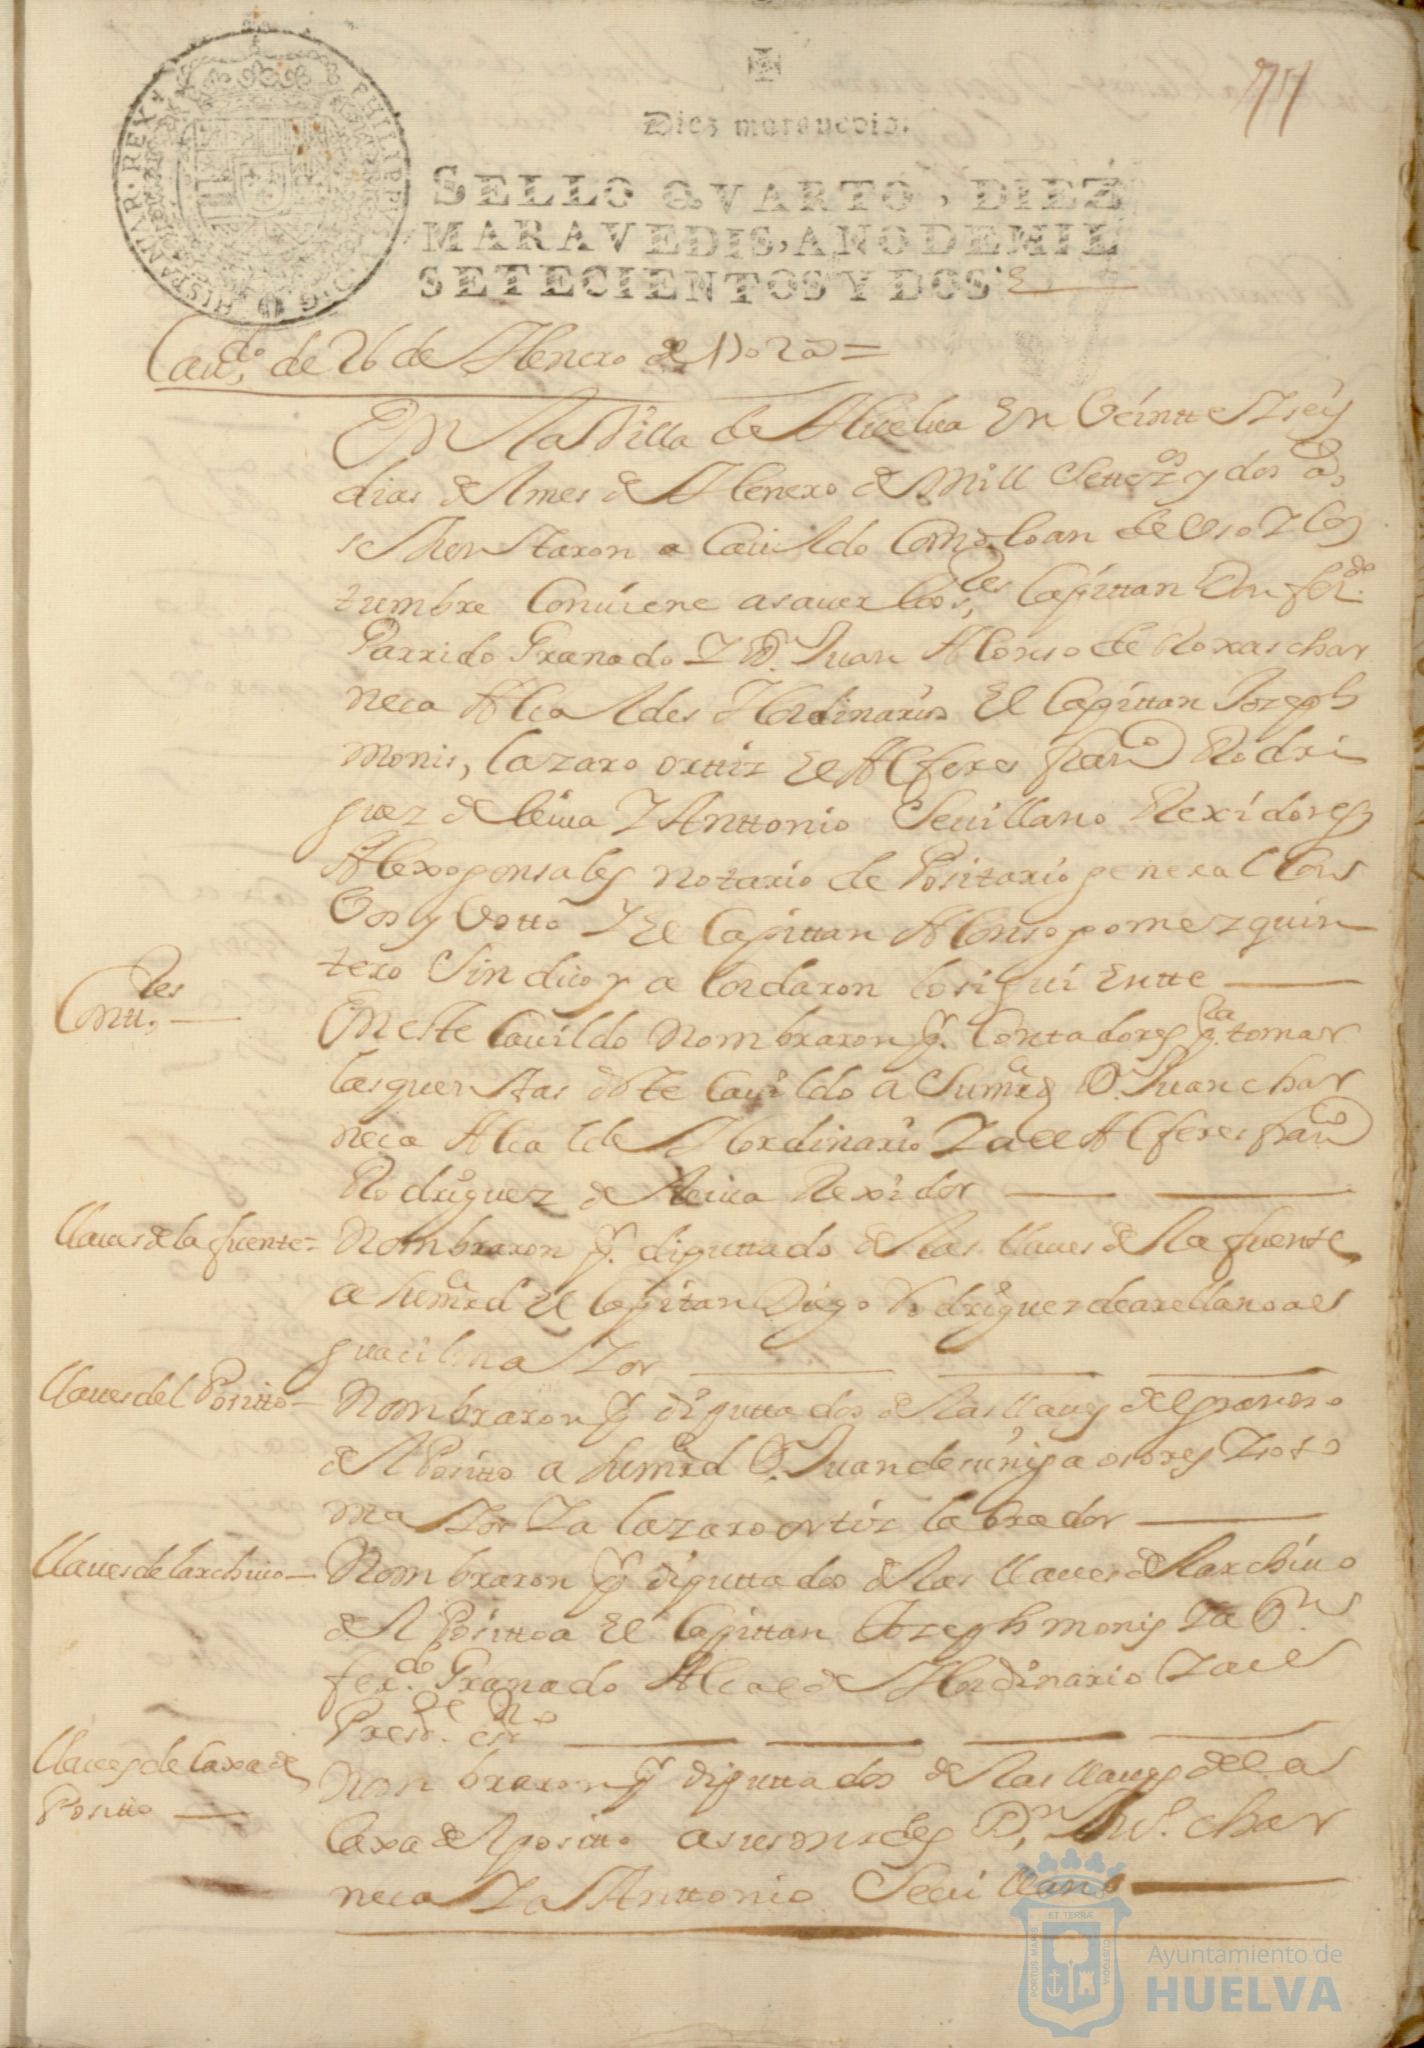 77
Diez maravedis.
SELLO QVARTO, DIEZ
MARAVEDIS, AÑO DE MIL
SETECIENTOS Y DOS.
PHILIPPVS V D G HISPANIAR REX
Caudo. de 26 de Henero de 1702 as =
En la Villa de Huelua En Veintte y seis
dias del mes de Henero de Mill Settezos y dos as,
se Juntaron a Cauildo Como lo an de Vso y Cos
tumbre Conuiene asauer los sres Capittan Dn ferdo.
Garrido Granado y D. Juan Alonso de Roxas char
neca Alcaldes Hordinarios El Capittan Joseph
monis, lazaro orttiz El Alferes franco Rodri
guez de leiua y Anttonio Seuillano Rexidores
Alexo gonsales notario de Positario general Con
Vos y Votto y El Capittan Alonso gomez quin
tero Sindico y a Cordaron lo siguiEntte
Conttres
En este Cauildo nombraron p. Contadores pa tomar
las quentas deste Cauildo a Sumrd D. Juan char
neca Alcalde Hordinario y a el Alferes franco
Rodriguez de leiua Rexidor
llaues de la fuente =
Nombraron p. diputtado de las llaues de la fuente
a sumrd El Capitan Diego Rodriguez de arellano al
guacil maior
llaues del Positto
Nombraron p diputtados de las llaues del granero
del Positto a sumrd D. Juan de suñiga osores y soto
maior y a lazaro ortiz labrador
llaues del archiuo
Nombraron p diputtados de las llaues del archiuo
del Positto a El Capittan Joseph monis y a Dn
ferdo. Granado Alcalde Hordinario y a el
Preste. esno
llaues de Caxa de
Positto
Nombraron p diputtados de las llaues de la
Caxa del positto a sus mrdes Dn. Juo. char
neca y a Anttonio Seuillano
PORTUS MARIS ET TERRAE CUSTODIA
Ayuntamiento de
HUELVA